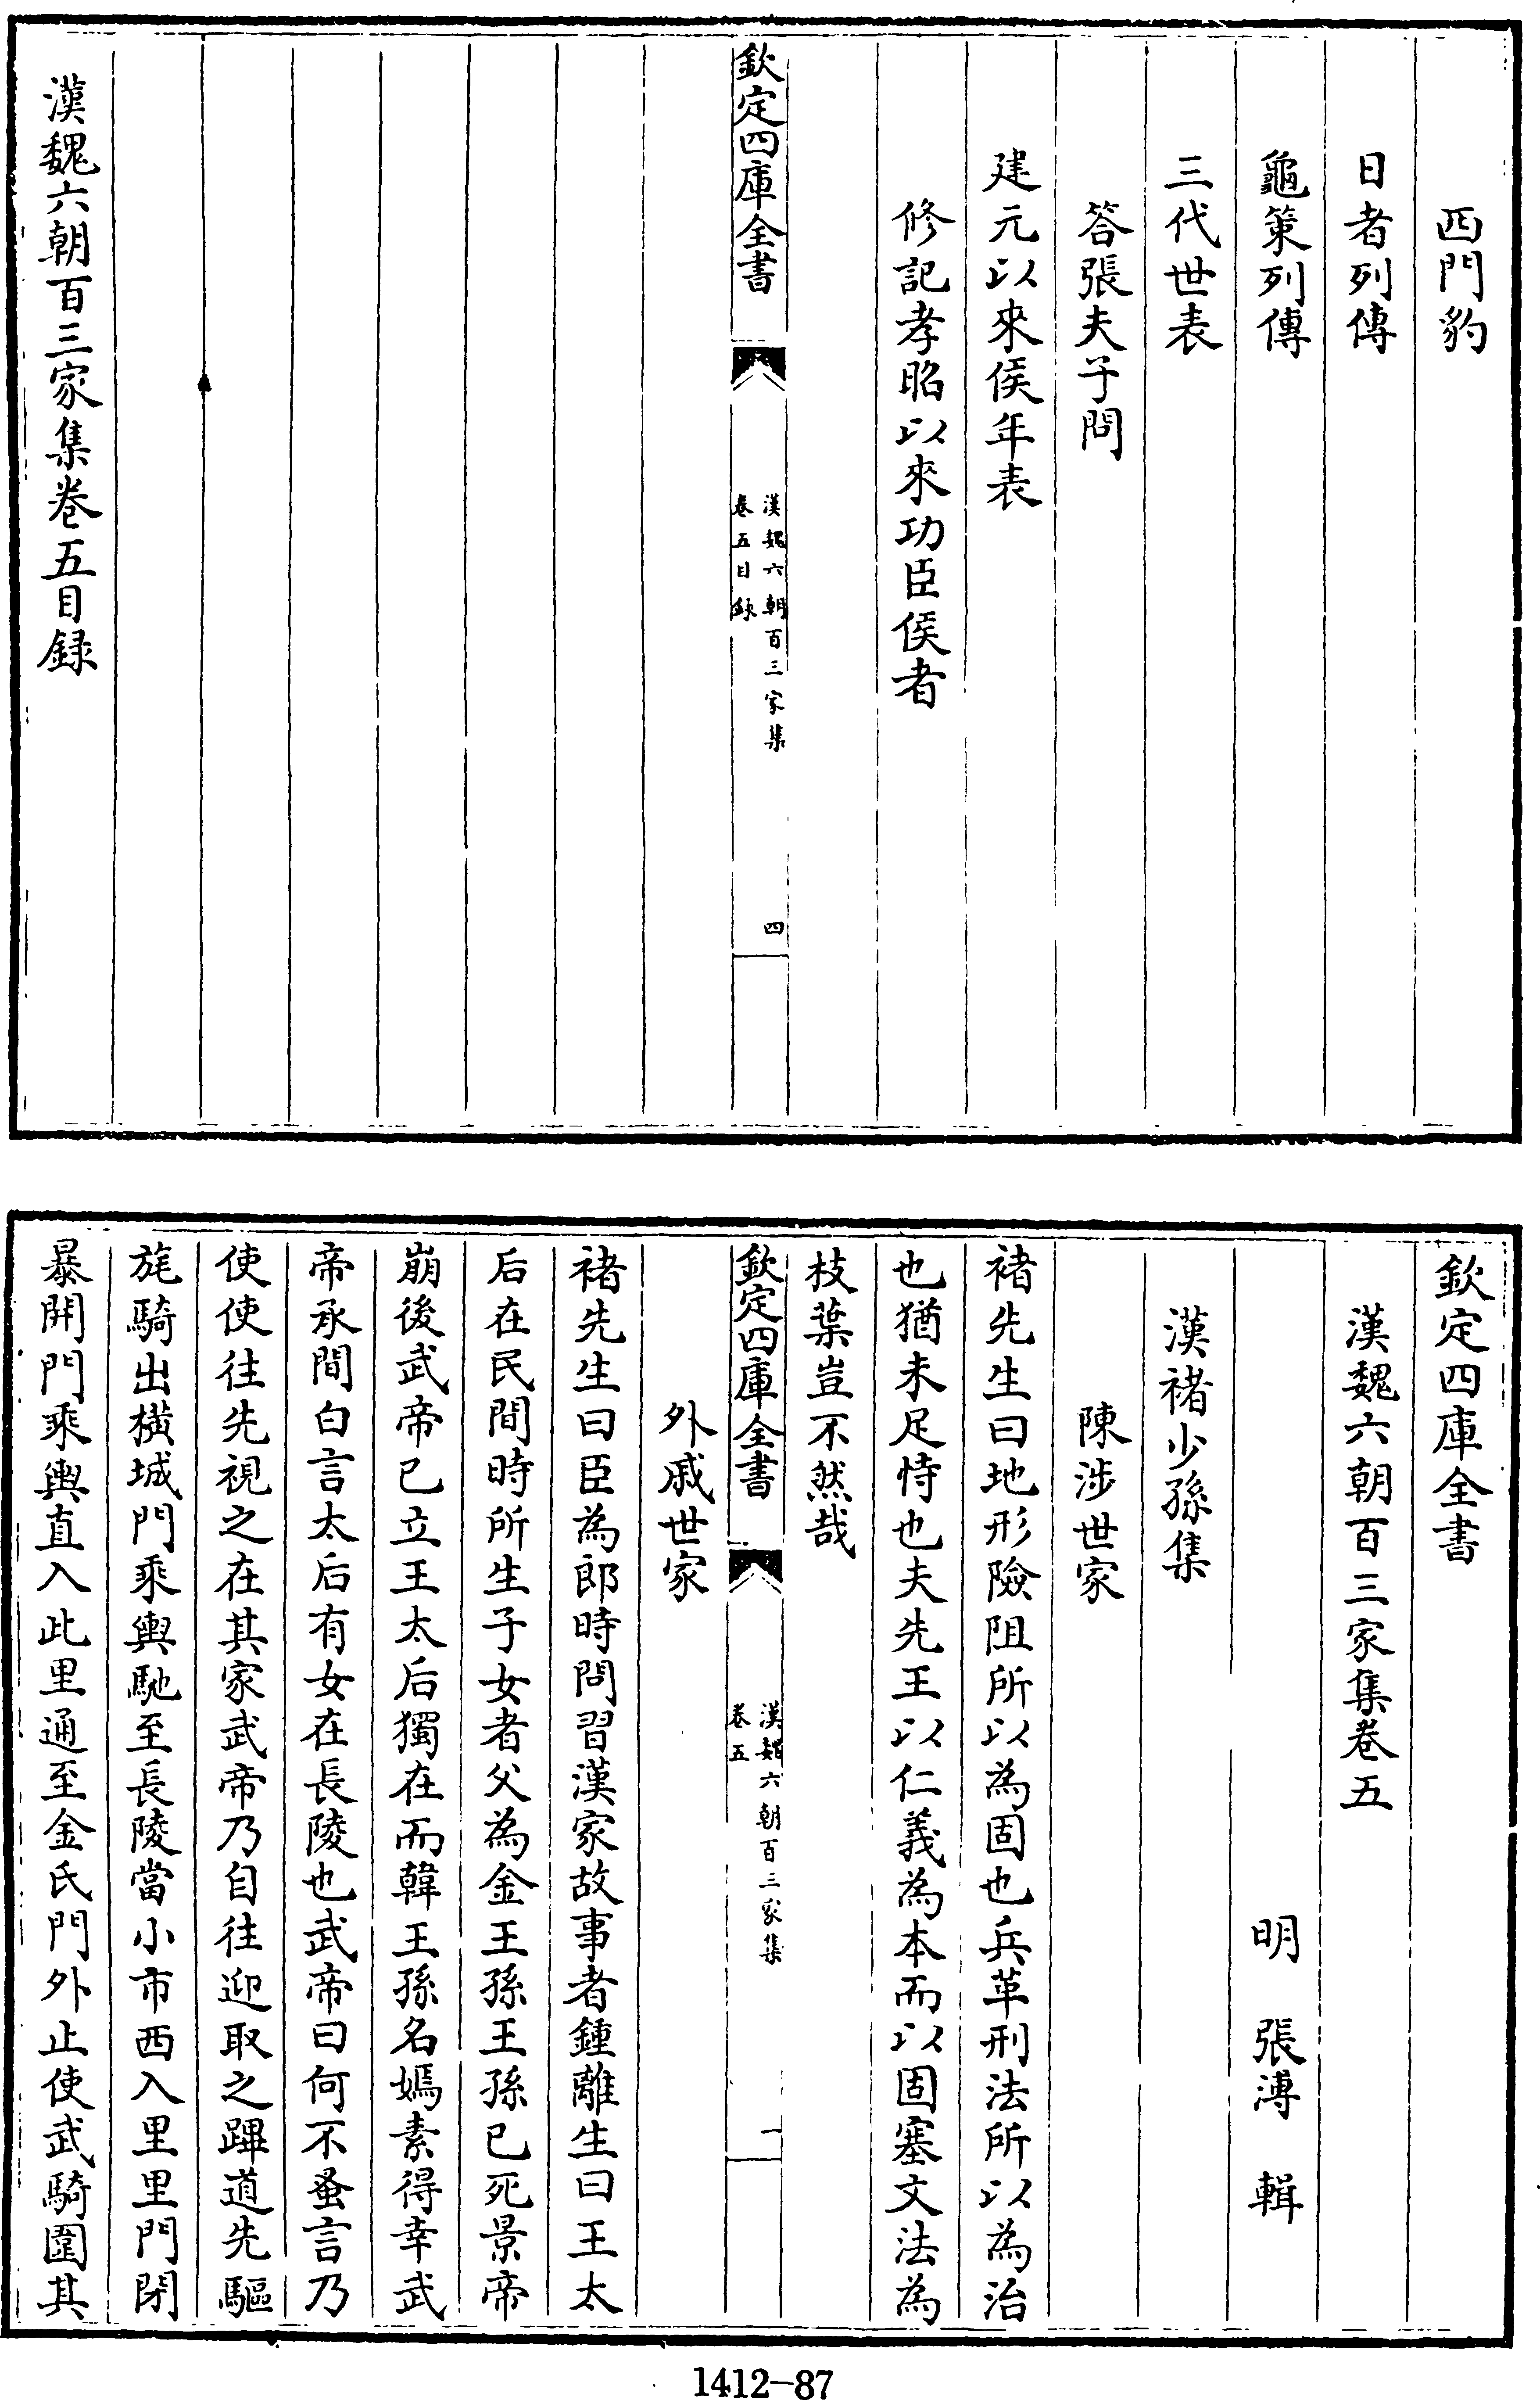 西門豹
日者列傳
龜策列傳
三代世表
答張夫子問
建元以來侯年表
修記孝昭以來功臣侯者
欽定四庫全書
漢魏六朝百三家集
卷五目録
四
漢魏六朝百三家集卷五目録
欽定四庫全書
漢魏六朝百三家集卷五
明 張溥 輯
漢褚少孫集
陳涉世家
褚先生曰地形險阻所以為固也兵革刑法所以為治
也猶未足恃也夫先王以仁義為本而以固塞文法為
枝葉豈不然哉
欽定四庫全書
漢魏六朝百三家集
卷五
一
外戚世家
褚先生曰臣為郎時問習漢家故事者鍾離生曰王太
后在民間時所生子女者父為金王孫王孫已死景帝
崩後武帝已立王太后獨在而韓王孫名嫣素得幸武
帝承間白言太后有女在長陵也武帝曰何不蚤言乃
使使往先視之在其家武帝乃自往迎取之蹕道先驅
旄騎出橫城門乘輿馳至長陵當小市西入里里門閉
暴開門乘輿直入此里通至金氏門外止使武騎圍其
1412-87